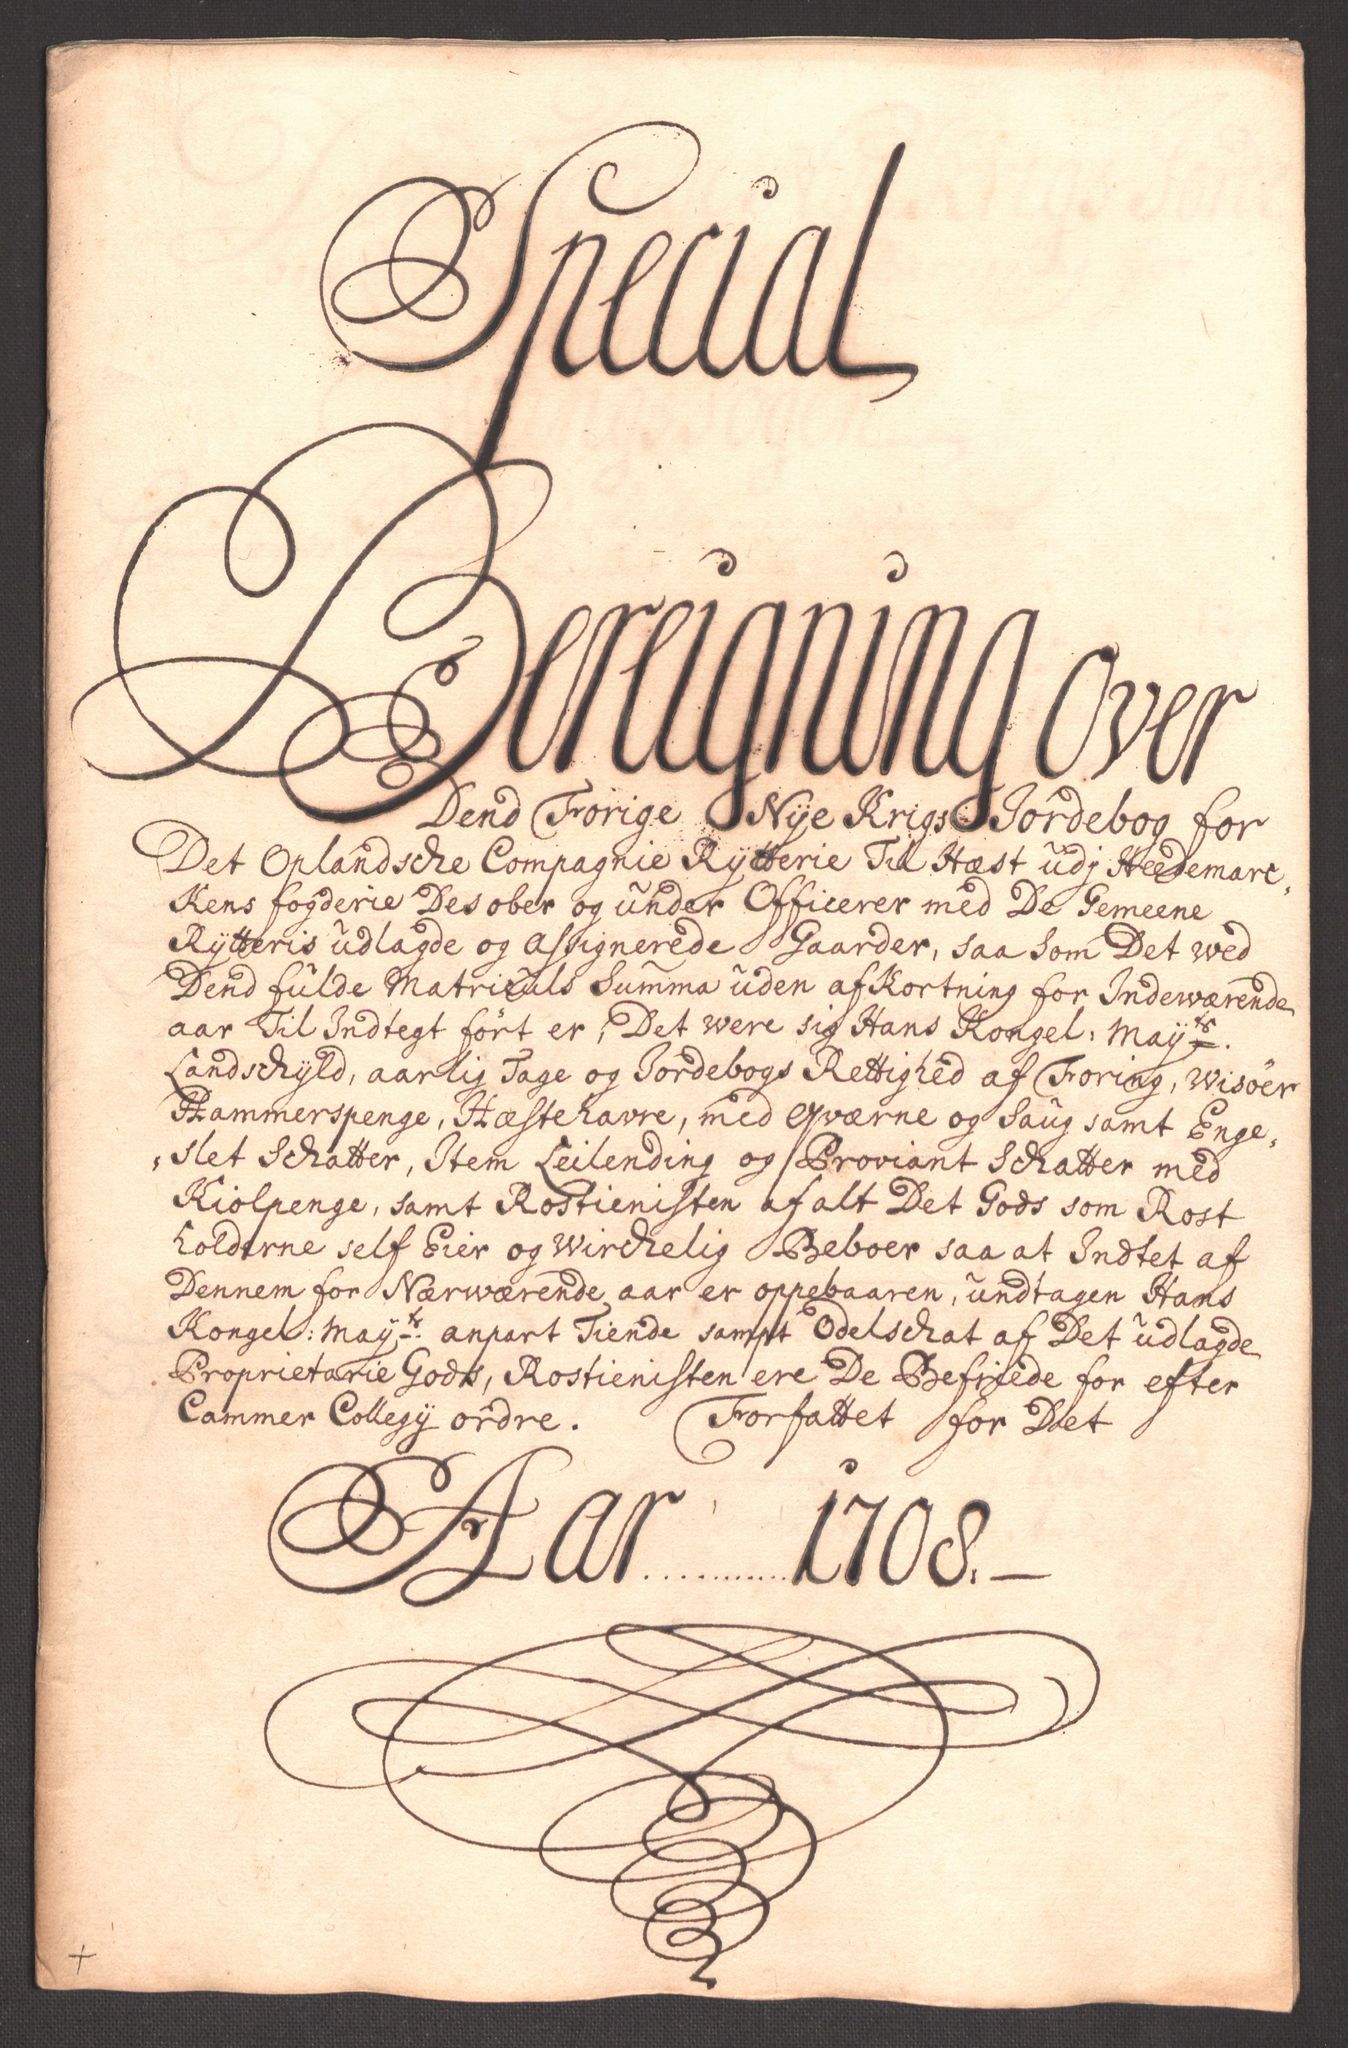 Special
Bereigning over
Dend Forrige Nÿe Krigs Jordebog for
Det Oplandsche Compagnie Rÿtterie Til Hæst udj Heedemarc,
Kens fogderie Des ober og under Officerer med De Gemeene
Rÿtteris udlagde og assignerede Gaarder, saa som Det wed
Dend fulde Matriculs Summa uden afkortning for Indewærende
aar Til Indtegt ført er, Det were sig Hans Kongel: Maÿts.
Landschÿld, aarlig Tage og Jordebogs Rettighed af Foring, Wisöer
Hammerspenge, Hæstehavre, med qværne og Saug samt Enge„
„slet Schatter, Item Leilending og Proviant Schatter med
Kiolpenge, samt Rostienisten af alt Det Gods som Rost
holderne self Eier og Wirchelig Beboer saa at Indtet af
Dennem for Nærwærende aar er oppebaaren, undtagen Hans
Kongel: Maÿts. anpart Tiende sampt Odelschat af Det udlagde
Proprietarie Gods, Rostienisten ere De Befriede for efter
Cammer Collegÿ ordre. Forfattet for Det
Aar ........... 1708. —
+